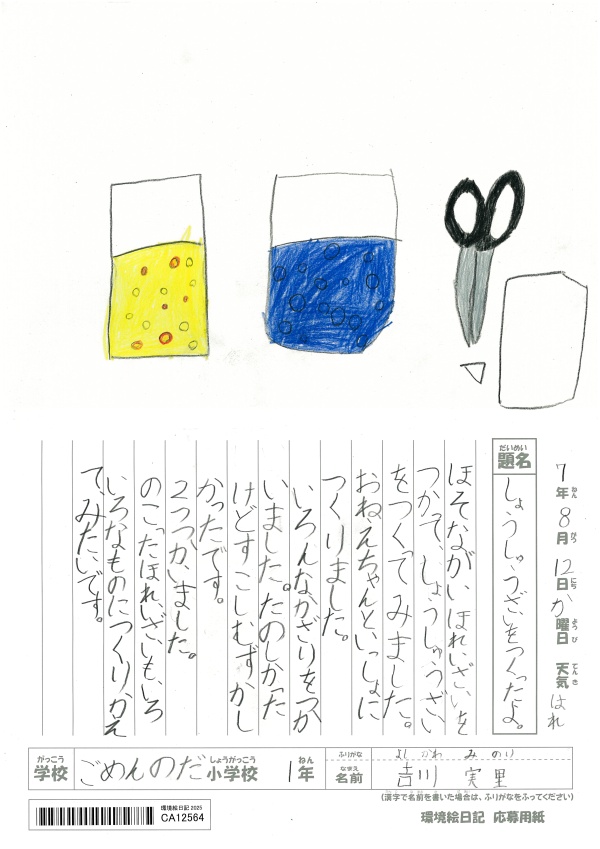 7年ねん8月がつ12日にちか曜日ようび 天気てんきはれ
題名だいめい しょうしゅうざいをつくったよ。
ほそながいほれいざいを
つかって、しょうしゅうざい
をつくってみました。
おねえちゃんといっしょに
つくりました。
いろんなかざりをつか
いました。たのしかった
けどすこしむずかし
かったです。
2つつかいました。
のこったほれいざいも、いろ
いろなものにつくりかえ
て、みたいです。
がっこう 学校 ごめんのだ 小学校 しょうがっこう 1年 ねん
ふりがな よしかわ みのり
なまえ 名前 吉川 実里
(漢字で名前を書いた場合は、ふりがなをふってください)
環境絵日記 2025
CA12564
環境絵日記 応募用紙